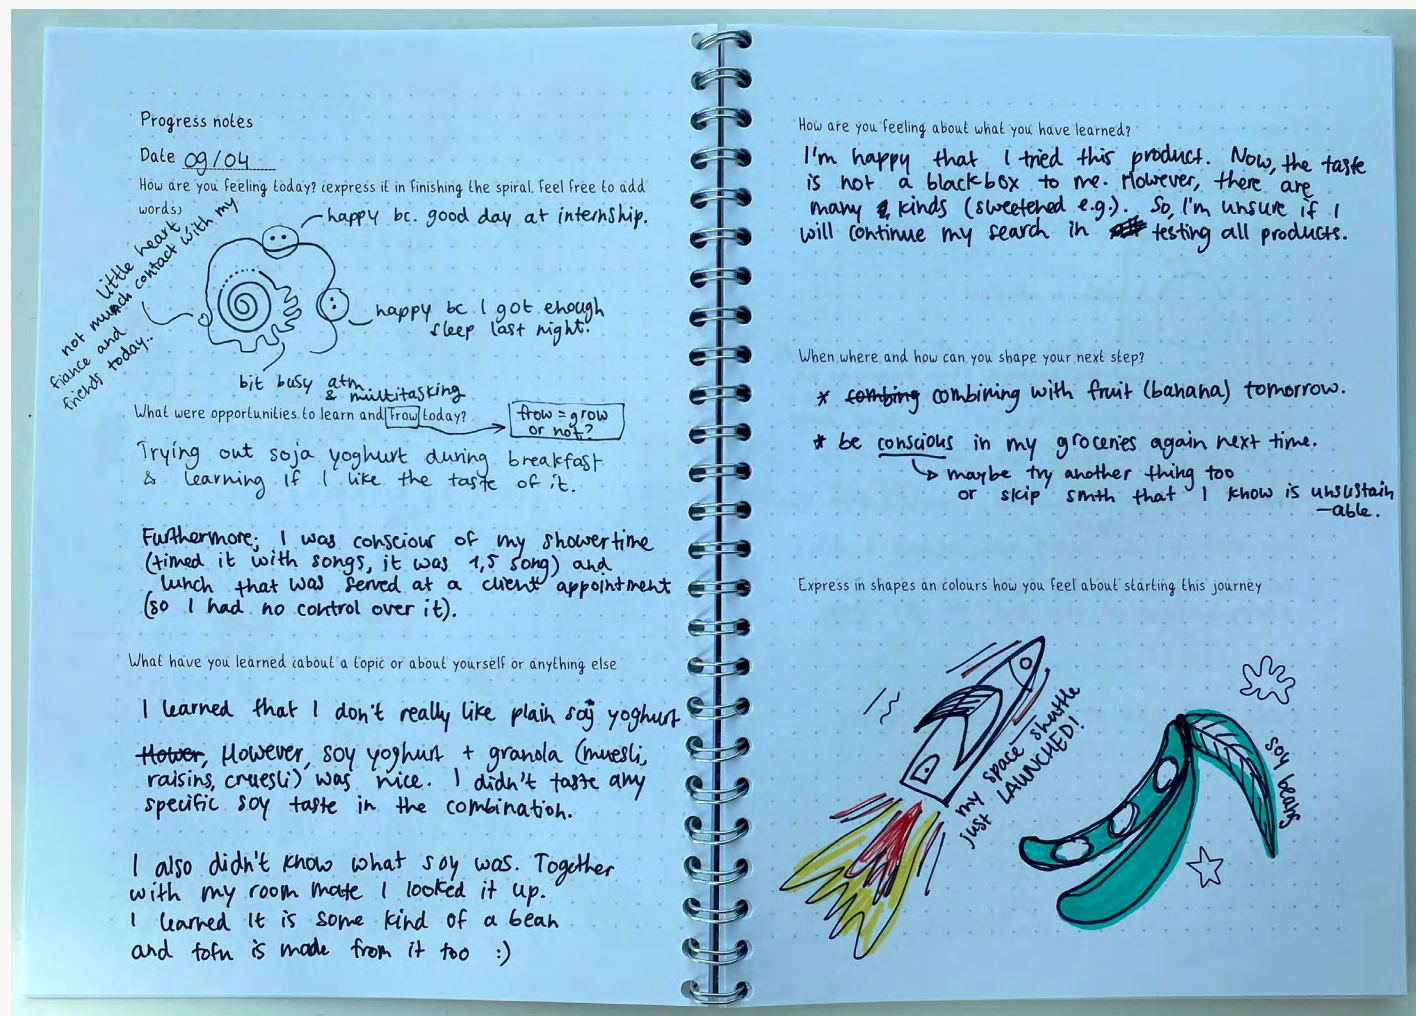 Progress notes
Date 09/04
How are you feeling today? (express it in finishing the spiral, feel free to add
words)
happy bc. good day at internship.
little heart,
not much contact with my
fiance and
friends today..
happy bc I got enough
sleep last night!
bit busy atm
& multitasking
What were opportunities to learn and frow today?
frow = grow
or not?
Trying out soja yoghurt during breakfast
& learning if I like the taste of it.
Furthermore, I was conscious of my showertime
(timed it with songs, it was 1,5 song) and
lunch that was served at a client appointment
(so I had no control over it).
What have you learned (about a topic or about yourself or anything else
I learned that I don't really like plain soy yoghurt
Hower, However, soy yoghurt + granola (muesli,
raisins, cruesli) was nice. I didn't taste any
specific soy taste in the combination.
I also didn't know what soy was. Together
with my room mate I looked it up.
I learned it is some kind of a bean
and tofu is made from it too :)
How are you feeling about what you have learned?
I'm happy that I tried this product. Now, the taste
is not a blackbox to me. However, there are
many kinds (sweetened e.g.). So, I'm unsure if I
will continue my search in testing all products.
When where and how can you shape your next step?
* combing combining with fruit (banana) tomorrow.
* be conscious in my groceries again next time.
↳ maybe try another thing too
or skip smth that I know is unsustain
-able.
Express in shapes an colours how you feel about starting this journey
my space shuttle
just LAUNCHED!
soy beans